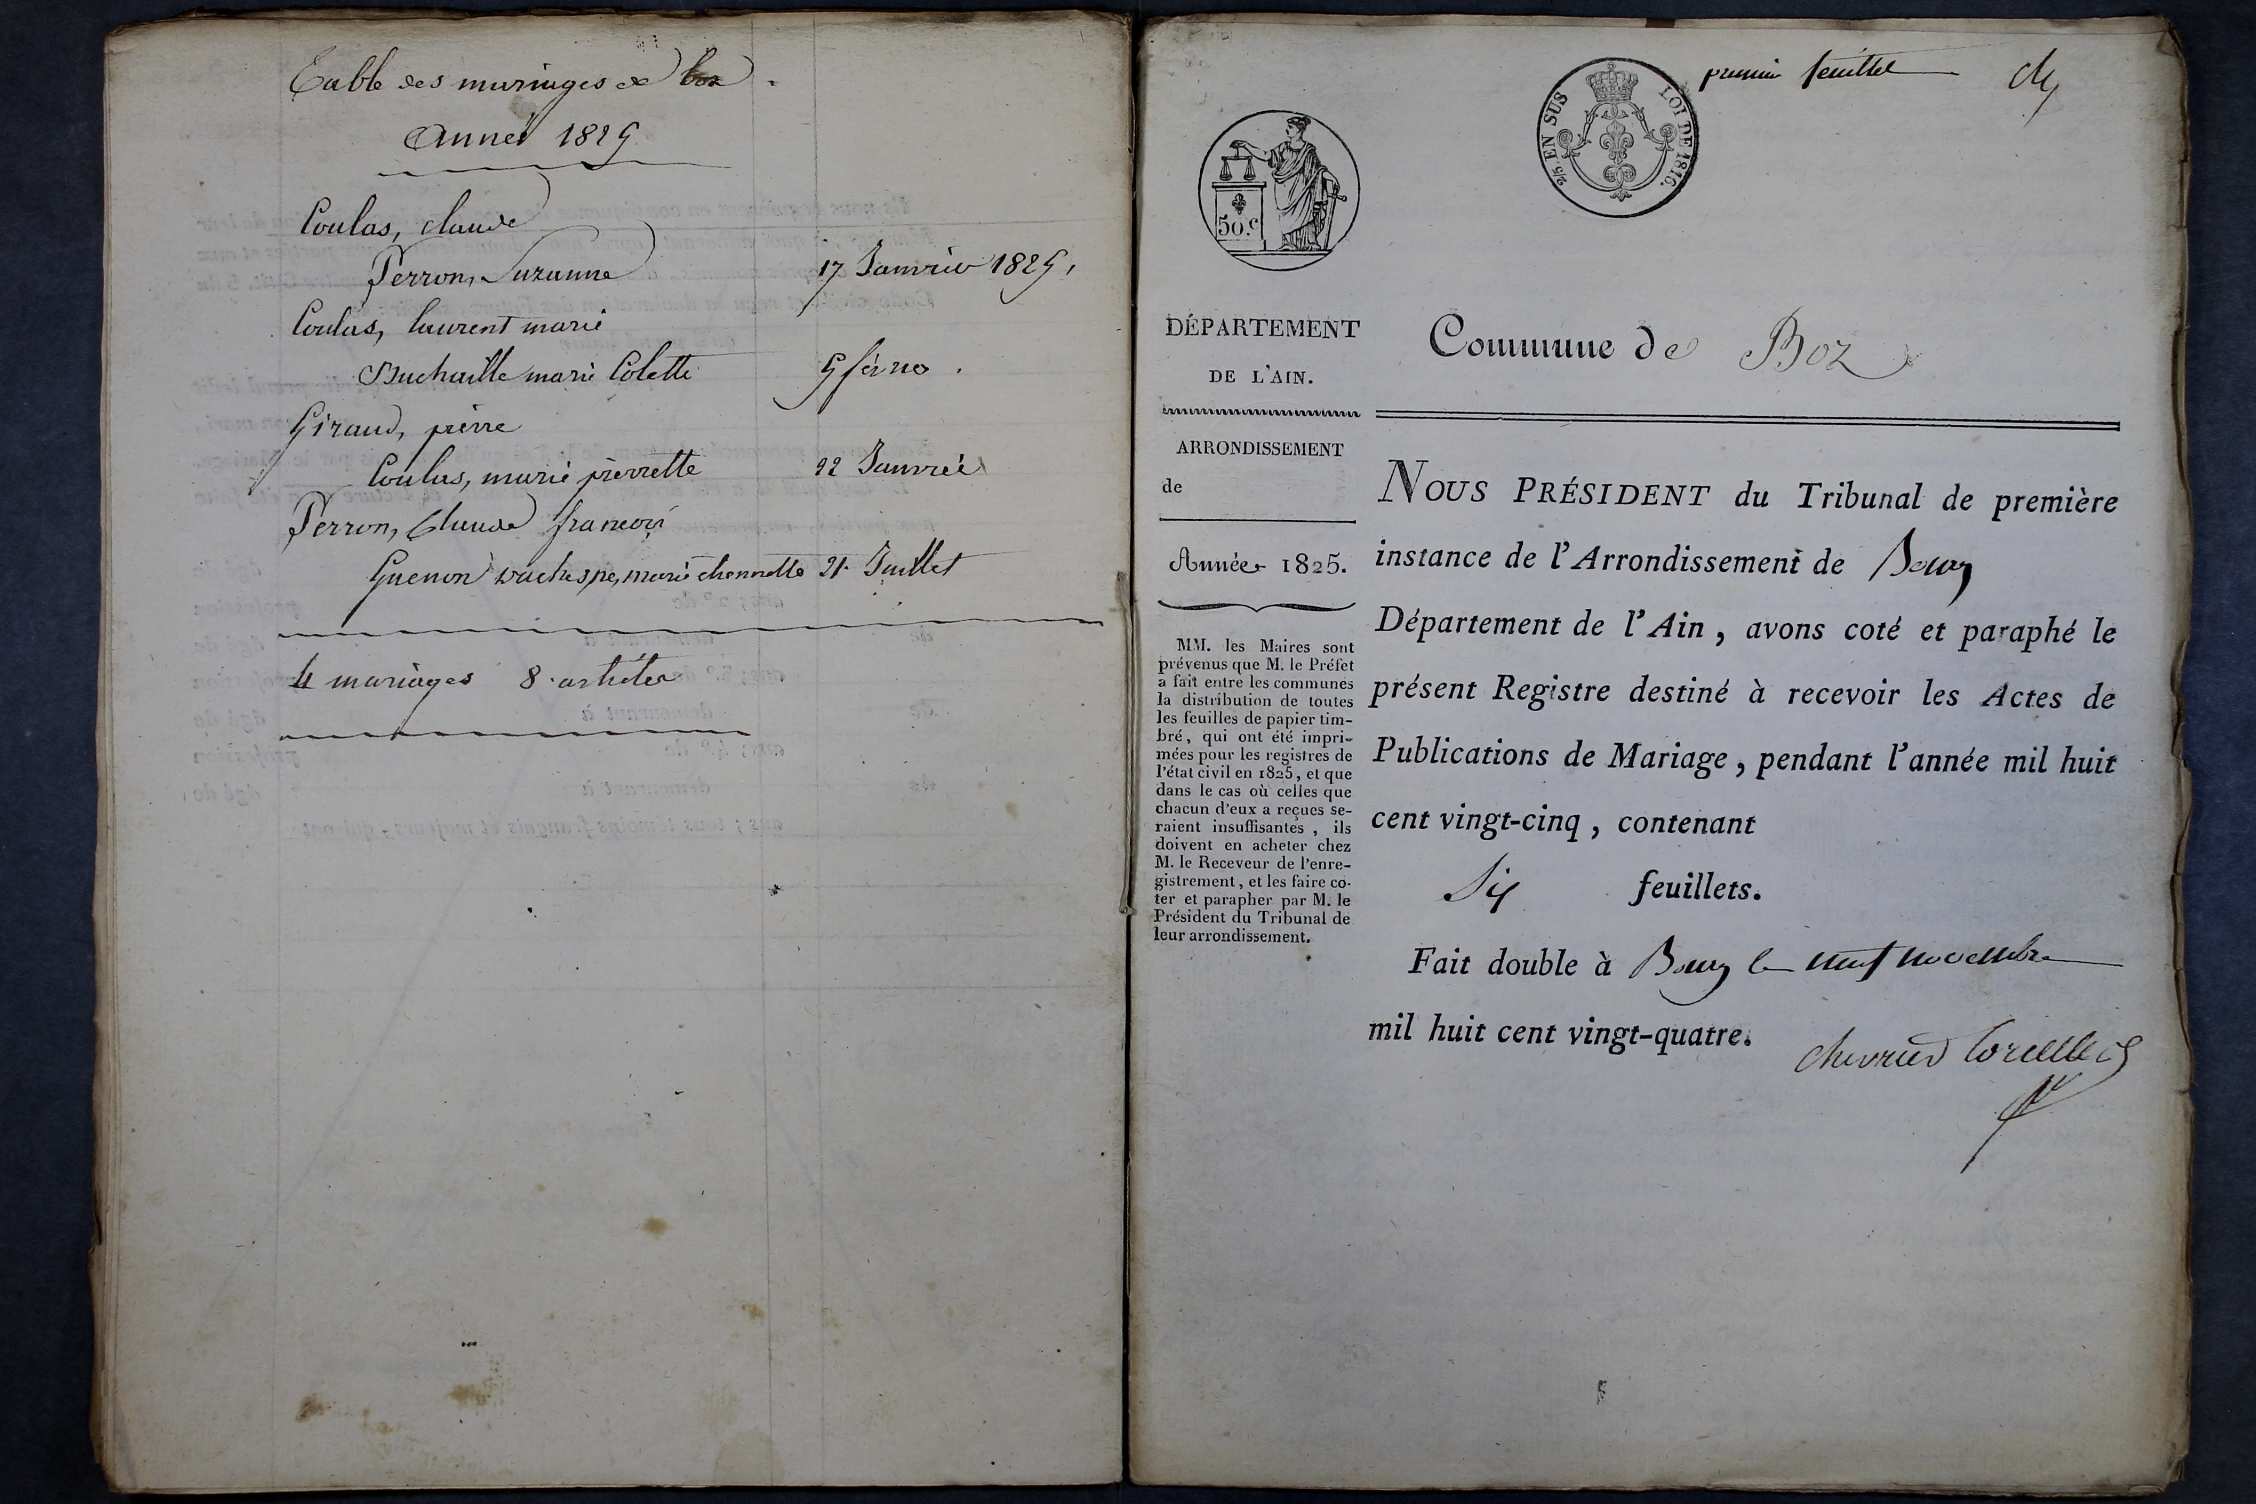 Table des mariages de boz.
Année 1825
Coulas, claude
Perron, Suzanne 17 Janvier 1825,
Coulas, laurent marie
Duchaille marie Colette 5 fevrio.
Giraud, pierre
Coulas, marie pierrette 22 Janvrie
Perron, Claude francois
Guenon marie 21. Juillet
4 mariages 8. articles
premier feuillet Ch
2/5. EN SUS
LOI DE 1816.
50.c
DÉPARTEMENT
DE L'AIN.
ARRONDISSEMENT
de
Année 1825.
MM. les Maires sont
prévenus que M. le Préfet
a fait entre les communes
la distribution de toutes
les feuilles de papier tim-
bré, qui ont été impri-
mées pour les registres de
l'état civil en 1825, et que
dans le cas où celles que
chacun d'eux a reçues se-
raient insuffisantes, ils
doivent en acheter chez
M. le Receveur de l'enre-
gistrement, et les faire co-
ter et parapher par M. le
Président du Tribunal de
leur arrondissement.
Commune de Boz
NOUS PRÉSIDENT du Tribunal de première
instance de l'Arrondissement de Bourg
Département de l'Ain, avons coté et paraphé le
présent Registre destiné à recevoir les Actes de
Publications de Mariage, pendant l'année mil huit
cent vingt-cinq, contenant
Six feuillets.
Fait double à Bourg le neuf novembre
mil huit cent vingt-quatre.
chevrier Corcelles